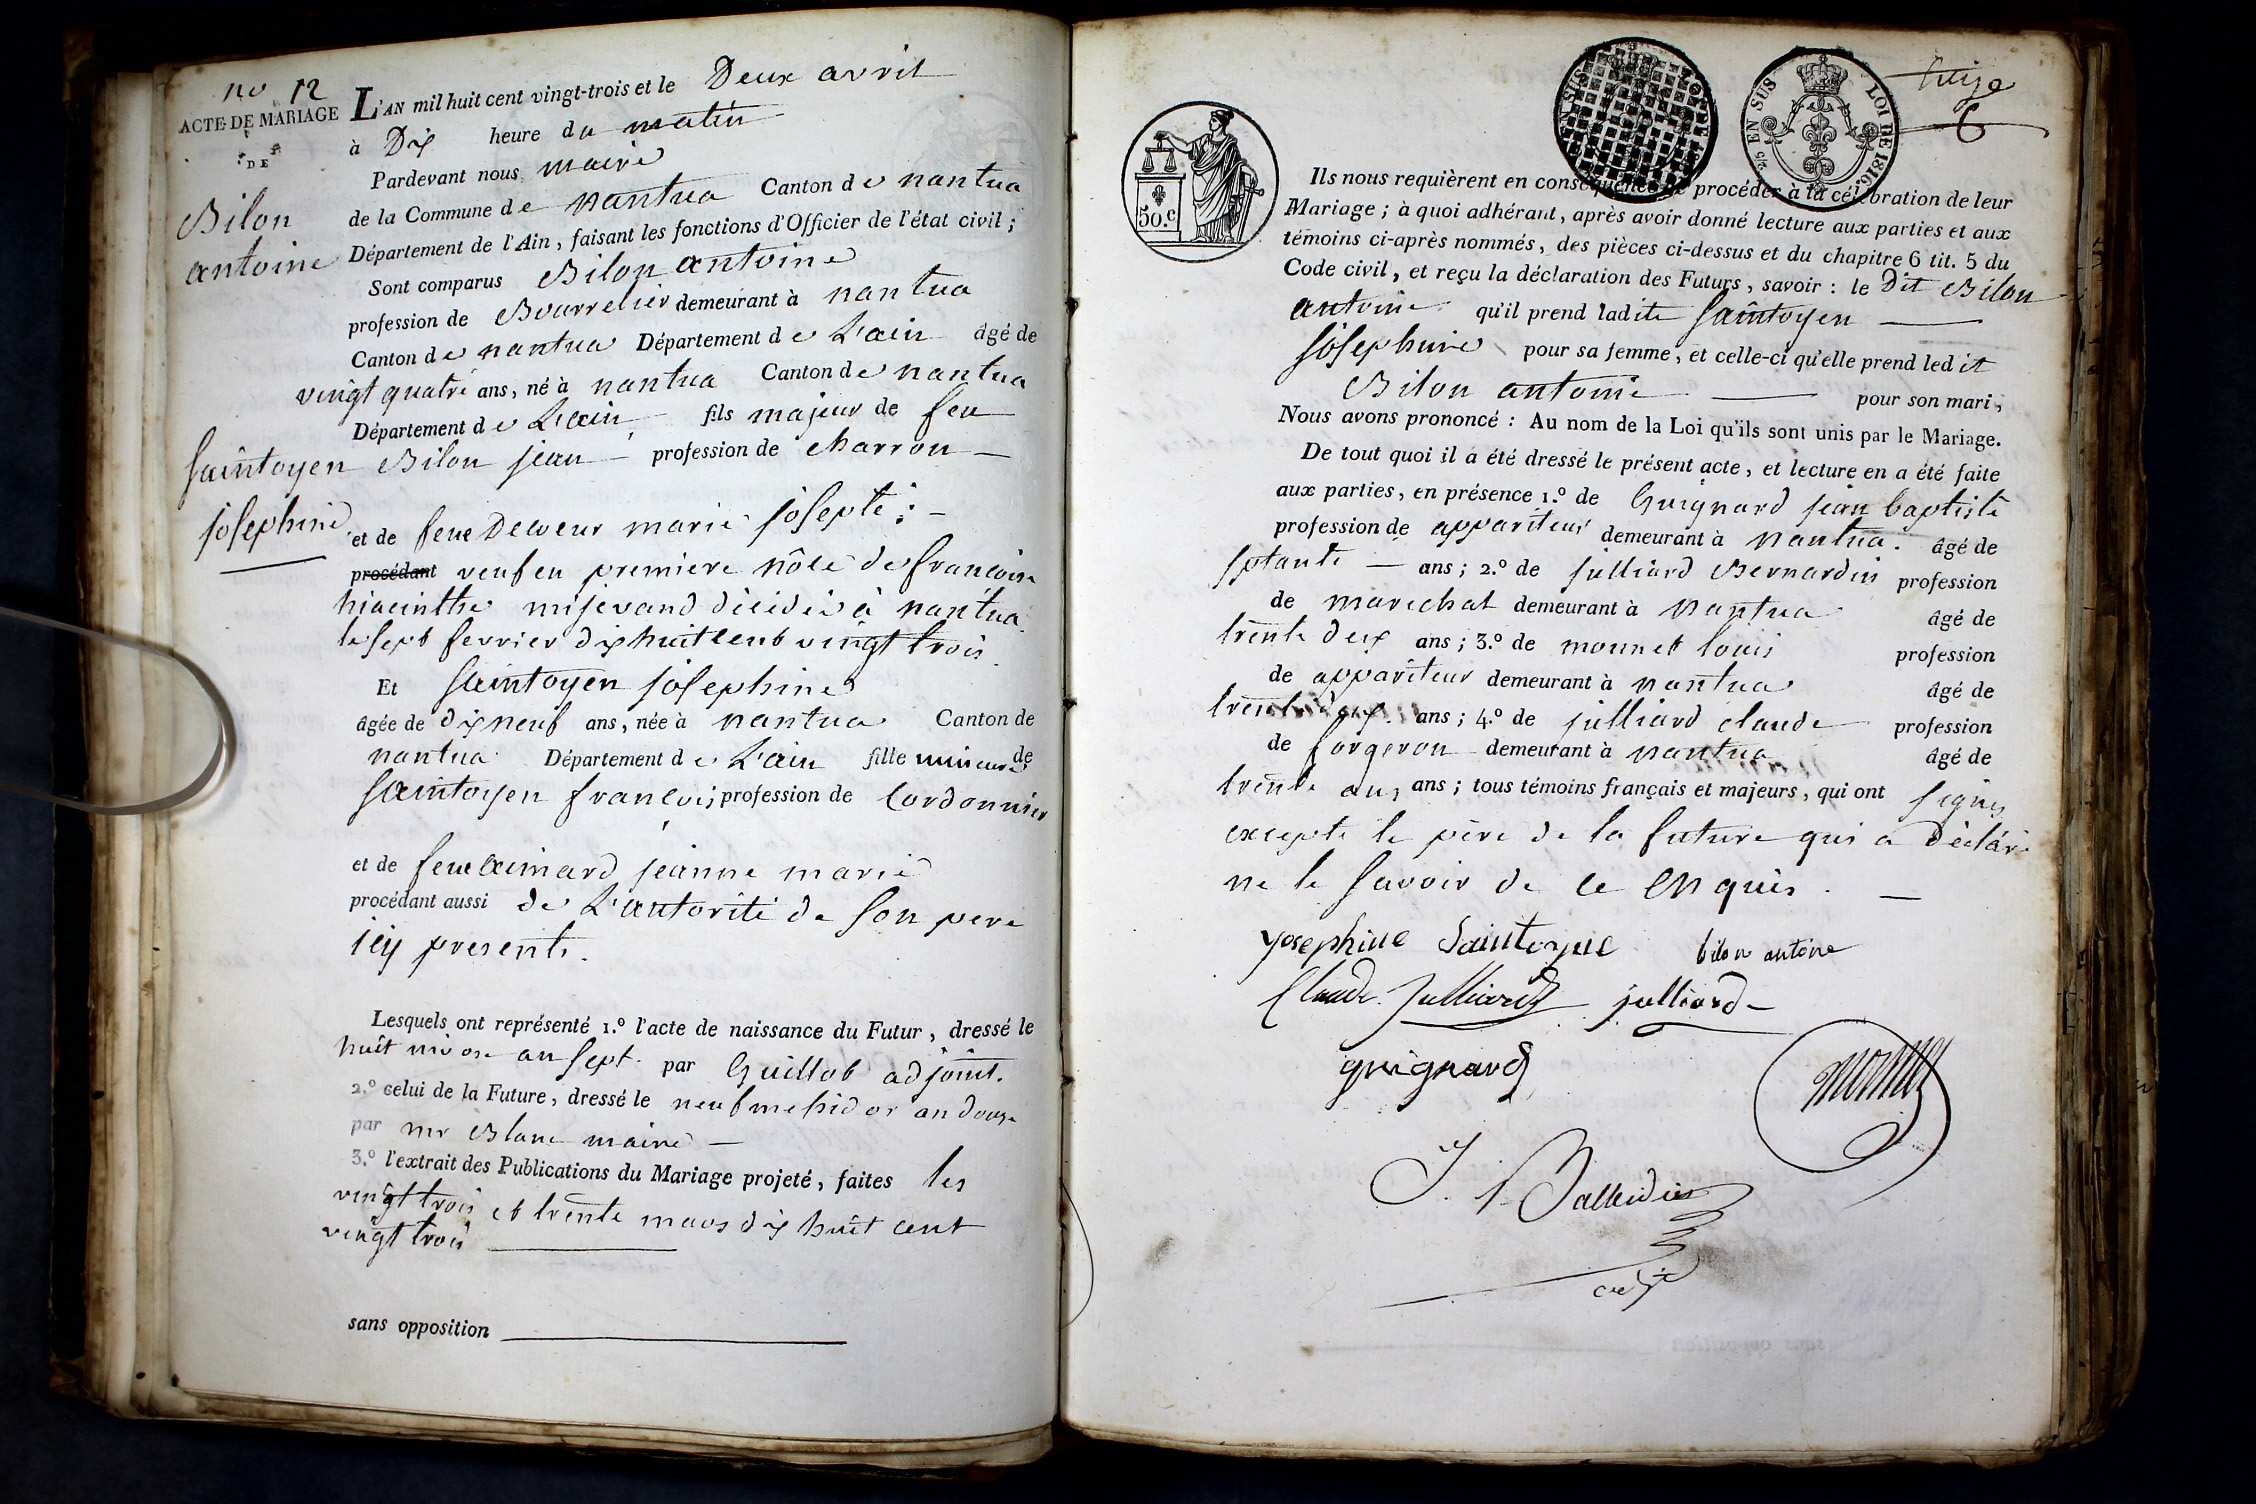 no 12
ACTE DE MARIAGE
DE
Bilon
antoine
Saintoyen
josephine
L'AN mil huit cent vingt-trois et le Deux avril
à Dix heure du matin
Pardevant nous maire
de la Commune de nantua Canton de nantua
Département de l'Ain, faisant les fonctions d'Officier de l'état civil;
Sont comparus Bilon antoine
profession de Bourrelier demeurant à nantua
Canton de nantua Département de L'ain âgé de
vingt quatre ans, né à nantua Canton de nantua
Département de L'ain fils majeur de feu
Bilon jean profession de charron
et de feue marie josepte;
procédant veuf en premiere nôce de francoise
hiacinthe décédée à nantua
le sept fevrier dix huit cent vingt trois
Et Saintoyen josephine
âgée de dix neuf ans, née à nantua Canton de
nantua Département de L'ain fille mineure de
Saintoyen francois profession de Cordonnier
et de feue aimard jeanne marie
procédant aussi de L'autorité de son pere
icy present.
Lesquels ont représenté 1.º l'acte de naissance du Futur, dressé le
huit nivose an sept par Guillot adjoint.
2.º celui de la Future, dressé le neuf mesidor an douze
par mr Blanc maire
3.º l'extrait des Publications du Mariage projeté, faites les
vingt trois et trente mars dix huit cent
vingt trois
sans opposition
EN SUS
LOI DE 1816.
50.c
treize
6
Ils nous requièrent en conséquence de procéder à la célébration de leur
Mariage; à quoi adhérant, après avoir donné lecture aux parties et aux
témoins ci-après nommés, des pièces ci-dessus et du chapitre 6 tit. 5 du
Code civil, et reçu la déclaration des Futurs, savoir: le Dit Bilon
antoine qu'il prend ladite Saintoyen
josephine pour sa femme, et celle-ci qu'elle prend ledit
Bilon antoine pour son mari,
Nous avons prononcé: Au nom de la Loi qu'ils sont unis par le Mariage.
De tout quoi il a été dressé le présent acte, et lecture en a été faite
aux parties, en présence 1.º de Guignard jean baptiste
profession de appariteur demeurant à nantua. âgé de
sptante ans; 2.º de julliard Bernardin profession
de marechal demeurant à nantua âgé de
trente deux ans; 3.º de monnet louis profession
de appariteur demeurant à nantua âgé de
trente ans; 4.º de julliard claude profession
de forgeron demeurant à nantua âgé de
trente ans, ans; tous témoins français et majeurs, qui ont signés
excepté le père de la future qui a déclaré
ne le savoir de ce enquis.
josephine Saintoyne bilon antoine
Claude Julliard julliard
guignard
monnet